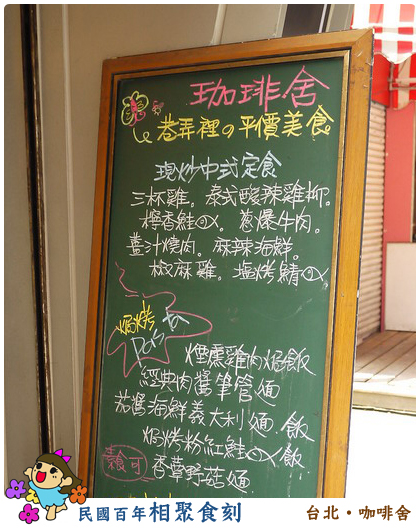 珈琲舍
巷弄裡の平價美食
現炒中式定食
三杯雞。泰式酸辣雞柳。
檸香鮭。蔥爆牛肉。
薑汁燒肉。麻辣海鮮。
椒麻雞。塩烤鯖
焗烤
Pasta
煙燻雞肉焗飯
經典肉醬筆管麵
茄醬海鮮義大利麵.飯
焗烤粉紅鮭飯
素食可
香蕈野菇麵
民國百年相聚食刻
台北・咖啡舍